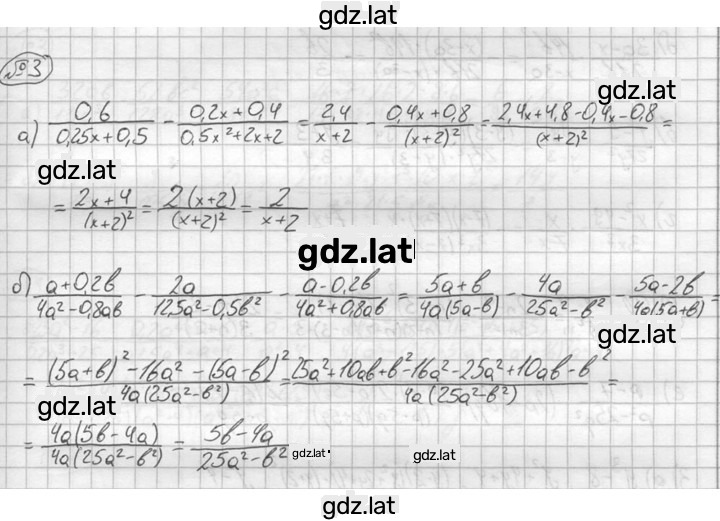 gdz.lat
№3
а) 0,6/(0,25x+0,5) - (0,2x+0,4)/(0,5x²+2x+2) = 2,4/(x+2) - (0,4x+0,8)/(x+2)² = (2,4x+4,8-0,4x-0,8)/(x+2)² =
gdz.lat
gdz.lat
= (2x+4)/(x+2)² = 2(x+2)/(x+2)² = 2/(x+2)
gdz.lat
б) (a+0,2b)/(4a²-0,8ab) - 2a/(12,5a²-0,5b²) - (a-0,2b)/(4a²+0,8ab) = (5a+b)/(4a(5a-b)) - 4a/(25a²-b²) - (5a-2b)/(4a(5a+b)) =
gdz.lat
= ((5a+b)²-16a²-(5a-b)²)/(4a(25a²-b²)) = (25a²+10ab+b²-16a²-25a²+10ab-b²)/(4a(25a²-b²)) =
gdz.lat
= 4a(5b-4a)/(4a(25a²-b²)) = (5b-4a)/(25a²-b²)
gdz.lat
gdz.lat
gdz.lat